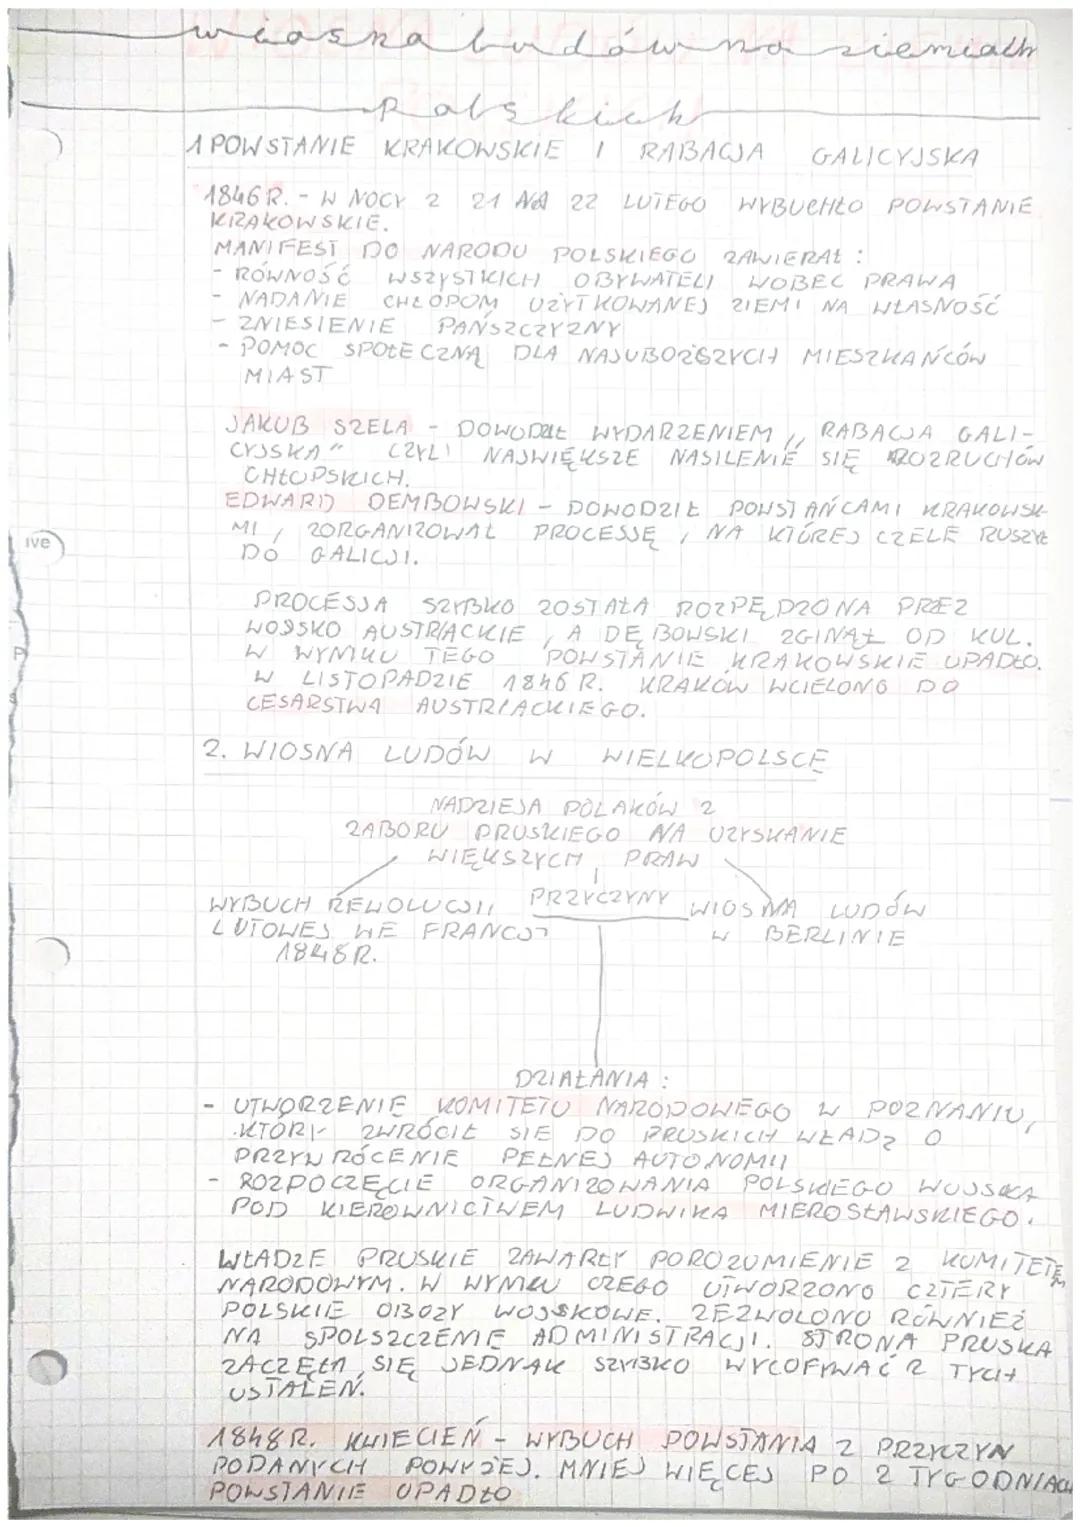 wiosna ludów na ziemiach
Polskich
1 POWSTANIE KRAKOWSKIE I RABACJA GALICYJSKA
1846 R. - W NOCY Z 21 NA 22 LUTEGO WYBUCHŁO POWSTANIE
KRAKOWSKIE.
MANIFEST DO NARODU POLSKIEGO ZAWIERAŁ :
- RÓWNOŚĆ WSZYSTKICH OBYWATELI WOBEC PRAWA
- NADANIE CHŁOPOM UŻYTKOWANEJ ZIEMI NA WŁASNOŚĆ
- ZNIESIENIE PAŃSZCZYZNY
- POMOC SPOŁECZNĄ DLA NAJUBOŻSZYCH MIESZKAŃCÓW
MIAST
JAKUB SZELA - DOWODZIŁ WYDARZENIEM ,, RABACJA GALI-
CYJSKA" CZYLI NAJWIĘKSZE NASILENIE SIĘ ROZRUCHÓW
CHŁOPSKICH.
EDWARD DEMBOWSKI - DOWODZIŁ POWSTAŃCAMI KRAKOWSK-
MI, ZORGANIZOWAŁ PROCESJĘ, NA KTÓREJ CZELE RUSZYŁ
DO GALICJI.
PROCESJA SZYBKO ZOSTAŁA ROZPĘDZONA PRZEZ
WOJSKO AUSTRIACKIE, A DĘBOWSKI ZGINĄŁ OD KUL.
W WYNIKU TEGO POWSTANIE KRAKOWSKIE UPADŁO.
W LISTOPADZIE 1846 R. KRAKÓW WCIELONO DO
CESARSTWA AUSTRIACKIEGO.
2. WIOSNA LUDÓW W WIELKOPOLSCE
NADZIEJA POLAKÓW Z
ZABORU PRUSKIEGO NA UZYSKANIE
WIĘKSZYCH PRAW
PRZYCZYNY
WYBUCH REWOLUCJI
LUTOWEJ WE FRANCJI
1848 R.
WIOSNA LUDÓW
W BERLINIE
DZIAŁANIA :
- UTWORZENIE KOMITETU NARODOWEGO W POZNANIU,
KTÓRY ZWRÓCIŁ SIE DO PRUSKICH WŁADZ O
PRZYWRÓCENIE PEŁNEJ AUTONOMII
- ROZPOCZĘCIE ORGANIZOWANIA POLSKIEGO WOJSKA
POD KIEROWNICTWEM LUDWIKA MIEROSŁAWSKIEGO.
WŁADZE PRUSKIE ZAWARŁY POROZUMIENIE Z KOMITETEM
NARODOWYM. W WYNIKU CZEGO UTWORZONO CZTERY
POLSKIE OBOZY WOJSKOWE. ZEZWOLONO RÓWNIEŻ
NA SPOLSZCZENIE ADMINISTRACJI. STRONA PRUSKA
ZACZĘŁA SIĘ JEDNAK SZYBKO WYCOFYWAĆ Z TYCH
USTALEŃ.
1848 R. KWIECIEŃ - WYBUCH POWSTANIA Z PRZYCZYN
PODANYCH POWYŻEJ. MNIEJ WIĘCEJ PO 2 TYGODNIACH
POWSTANIE UPADŁO